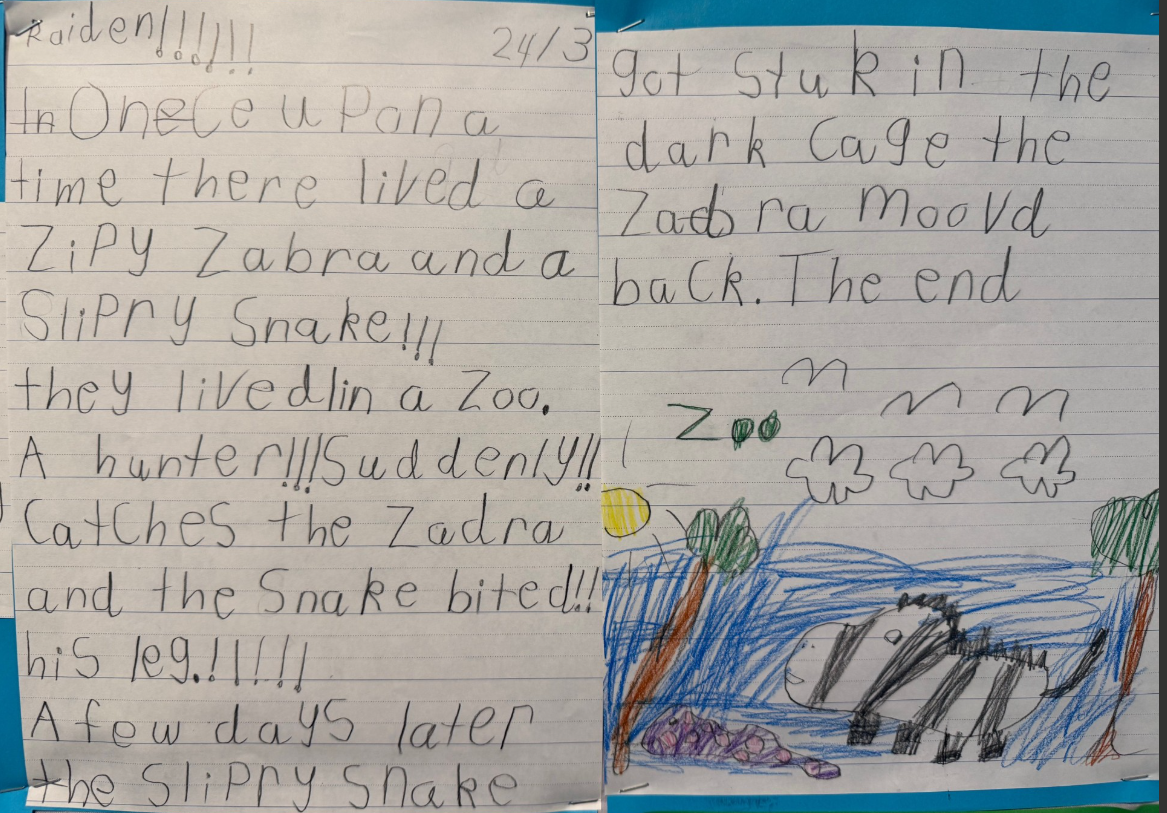 Raiden!!!!!!
24/3
In Onece upon a
time there lived a
Zipy Zabra and a
Slippry Snake!!!
they lived in a Zoo.
A hunter!!!Suddenly!!
Catches the Zadra
and the Snake bited!!
his leg.!!!!!!
A few days later
the Slippry Snake
got Stuk in the
dark Cage the
Zadbra moovd
back. The end
Zoo